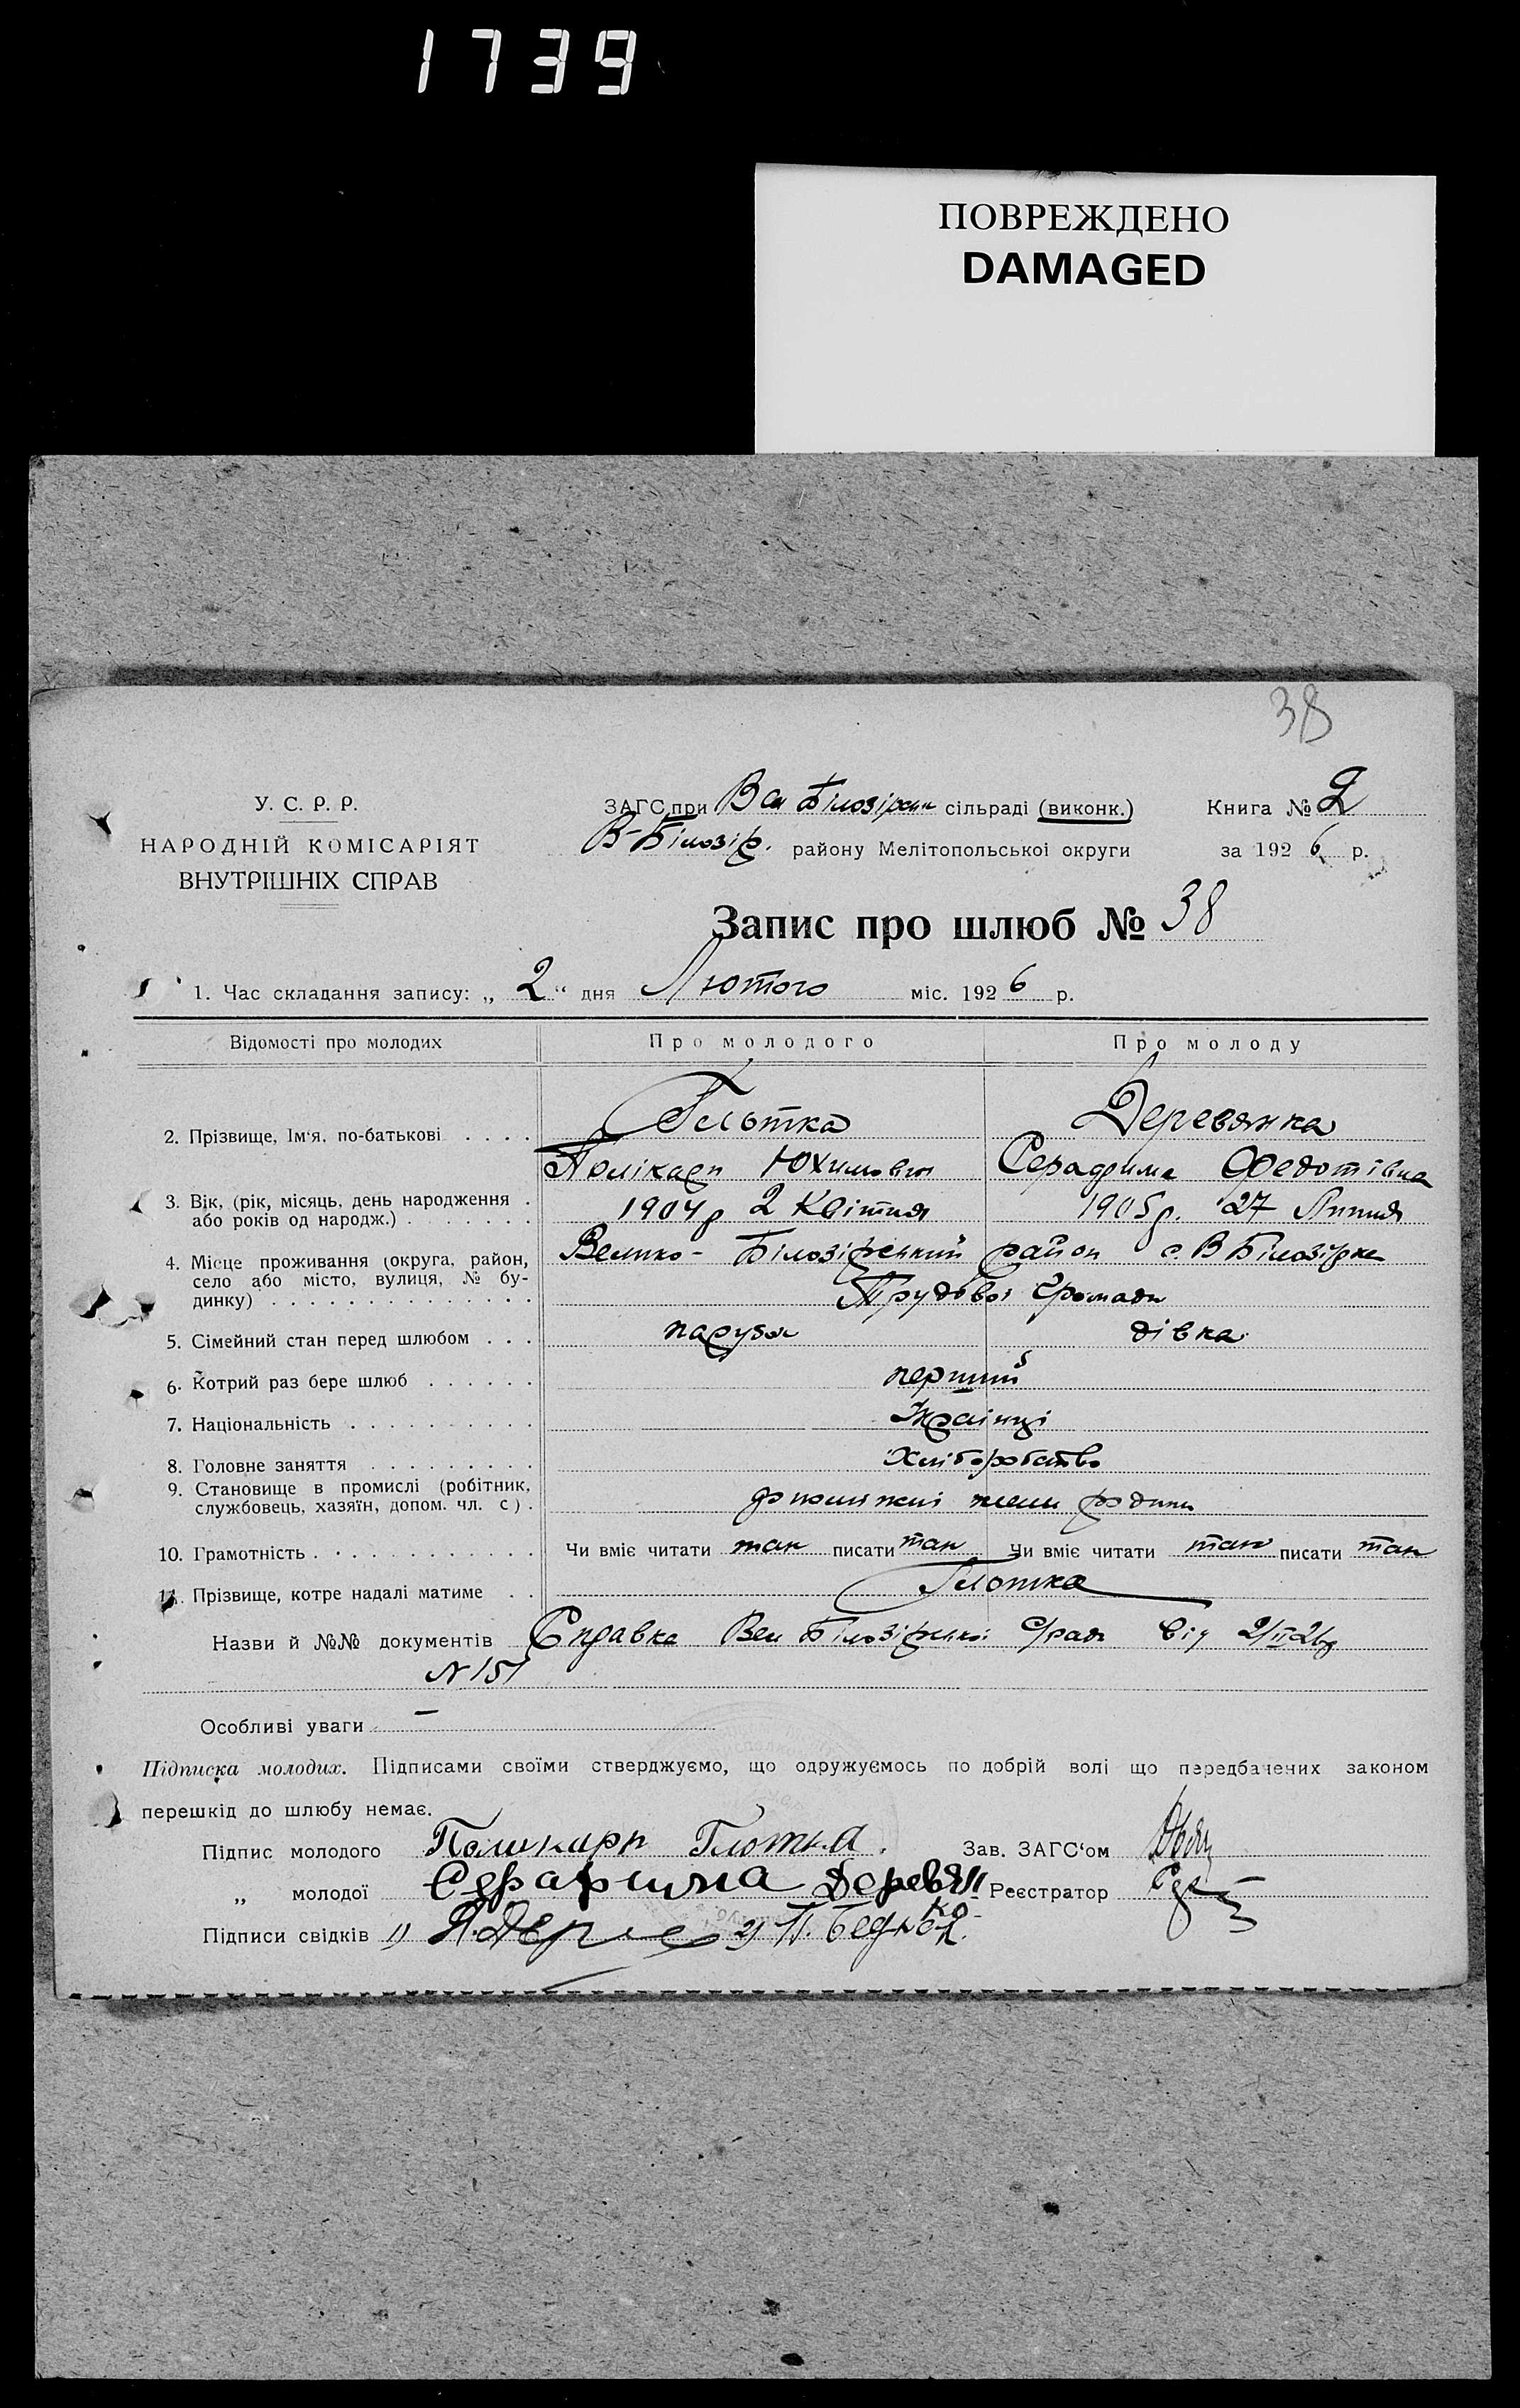 1739
ПОВРЕЖДЕНО
DAMAGED
38
У. С. Р. Р.
НАРОДНІЙ КОМІСАРІЯТ
ВНУТРІШНІХ СПРАВ
ЗАГС при Вел Білозірськ сільраді (виконк.)
В-Білозір. району Мелітопольської округи
Книга № 2
за 1926 р.
Запис про шлюб № 38
1. Час складання запису: „ 2 “ дня Лютого міс. 1926 р.
Відомості про молодих
Про молодого
Про молоду
2. Прізвище, Ім'я, по-батькові . . . .
Глотка
Деревянка
Полікарп Юхимович
Серафима Федотівна
3. Вік, (рік, місяць, день народження .
або років од народж.) . . . . . . .
1904 р 2 Квітня
1905 р. 27 Липня
4. Місце проживання (округа, район,
село або місто, вулиця, № бу-
динку) . . . . . . . . . . . . . .
Велико-Білозірський район с. В Білозірка
Трудової Громади
5. Сімейний стан перед шлюбом . . .
парубок
дівка
6. Котрий раз бере шлюб . . . . . .
перший
7. Національність . . . . . . . . . .
Українці
8. Головне заняття . . . . . . . . .
Хліборобство
9. Становище в промислі (робітник,
службовець, хазяїн, допом. чл. с) .
допоміжні члени родини
10. Грамотність . . . . . . . . . . . .
Чи вміє читати так писати так
Чи вміє читати так писати так
11. Прізвище, котре надалі матиме . .
Глотка
Назви й №№ документів Справка Вел Білозірської С/ради від 2/II 26р
N 151
Особливі уваги —
Підписка молодих. Підписами своїми стверджуємо, що одружуємось по добрій волі що передбачених законом
перешкід до шлюбу немає.
Підпис молодого Поликарп Глотка.
Зав. ЗАГС'ом
„ молодої Серафима Деревянко
Реєстратор
Підписи свідків 1) 2)